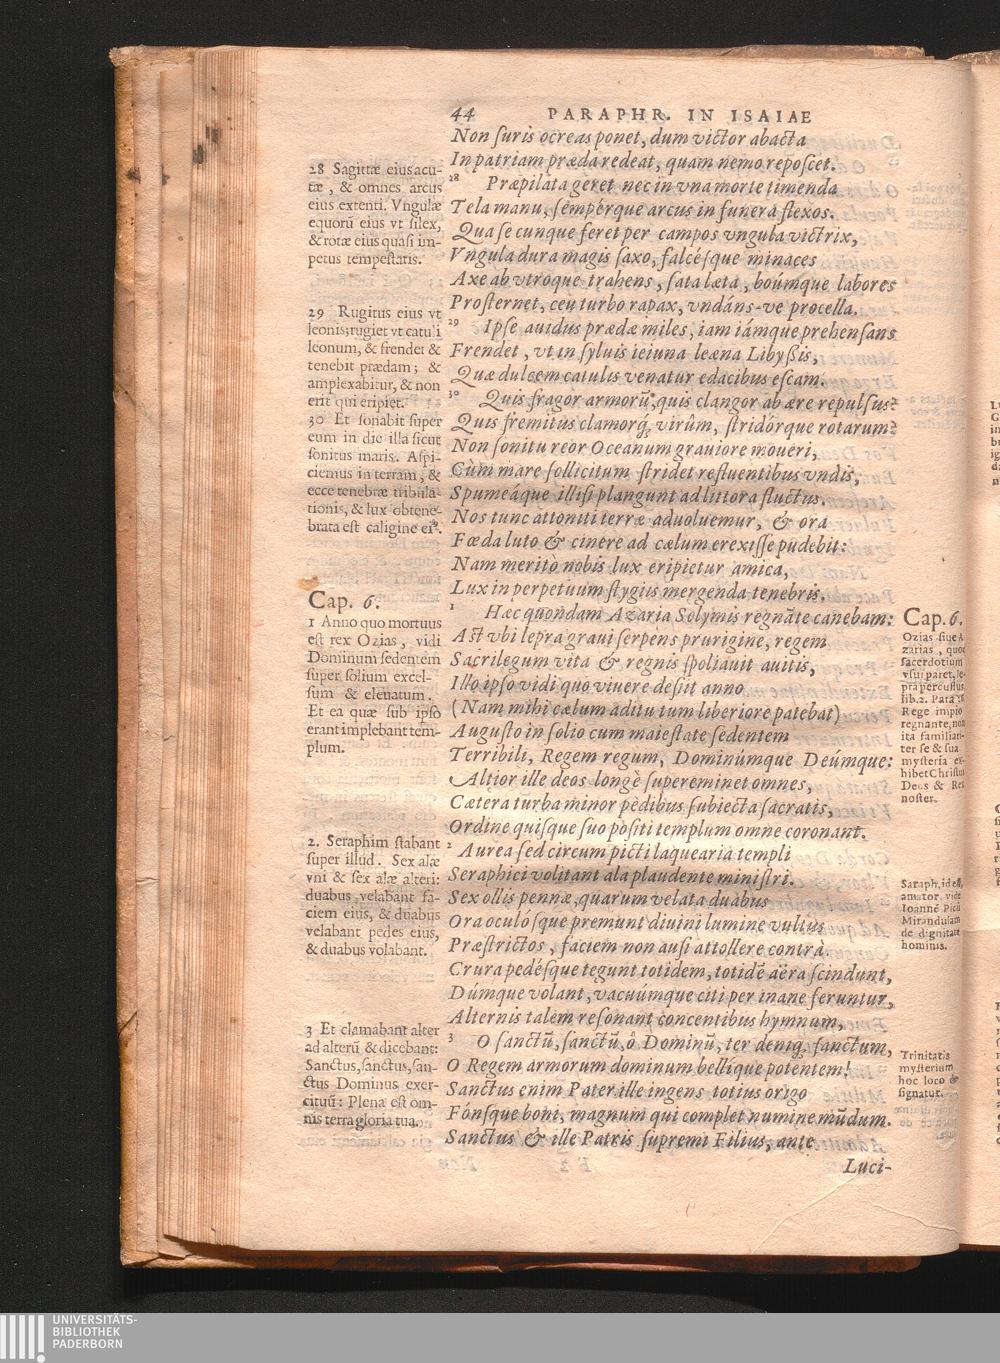 44 PARAPHR. IN ISAIAE
Non ſuris ocreas ponet, dum victor abacta
In patriam præda redeat, quam nemo repoſcet.
28 Præpilata geret nec in vna morte timenda
Tela manu, ſempérque arcus in funera flexos.
Qua ſe cunque feret per campos vngula victrix,
Vngula dura magis ſaxo, falcéſque minaces
Axe ab vtroque trahens, ſata læta, boúmque labores
Proſternet, ceu turbo rapax, vndáns-ve procella.
29 Ipſe auidus prædæ miles, iam iámque prehenſans
Frendet, vt in ſyluis ieiuna leæna Libyßis,
Quæ dulcem catulis venatur edacibus eſcam.
30 Quis fragor armorũ, quis clangor ab ære repulſus?
Quis fremitus clamorq́; virûm, ſtridórque rotarum?
Non ſonitu reor Oceanum grauiore moueri,
Cùm mare ſollicitum ſtridet refluentibus vndis,
Spumeáque illiſi plangunt ad littora fluctus.
Nos tunc attoniti terræ aduoluemur, & ora
Fœda luto & cinere ad cælum erexiſſe pudebit:
Nam meritò nobis lux eripietur amica,
Lux in perpetuum ſtygiis mergenda tenebris.
1 Hæc quondam Azaria Solymis regnãte canebam:
Aſt vbi lepra graui ſerpens prurigine, regem
Sacrilegum vita & regnis ſpoliauit auitis,
Illo ipſo vidi quo viuere deſiit anno
(Nam mihi cælum aditu tum liberiore patebat)
Auguſto in ſolio cum maieſtate ſedentem
Terribili, Regem regum, Dominúmque Deúmque:
Altior ille deos longè ſupereminet omnes,
Cætera turba minor pedibus ſubiecta ſacratis,
Ordine quiſque ſuo poſiti templum omne coronant.
2 Aurea ſed circum picti laquearia templi
Seraphici volitant ala plaudente miniſtri.
Sex ollis pennæ, quarum velata duabus
Ora oculóſque premunt diuini lumine vultus
Præſtrictos, faciem non auſi attollere contrà.
Crura pedéſque tegunt totidem, totidẽ aëra ſcindunt,
Dúmque volant, vacuúmque citi per inane feruntur,
Alternis talem reſonant concentibus hymnum,
3 O ſanctũ, ſanctũ, ô Dominũ, ter deniq́; ſanctum,
O Regem armorum dominum bellíque potentem!
Sanctus enim Pater ille ingens totius origo
Fónſque boni, magnum qui complet numine mũdum.
Sanctus & ille Patris ſupremi Filius, ante
Luci-
28 Sagittæ eius acu-
tæ, & omnes arcus
eius extenti. Vngulæ
equorũ eius vt ſilex,
& rotæ eius quaſi im-
petus tempeſtatis.
29 Rugitus eius vt
leonis; rugiet vt catuli
leonum, & frendet &
tenebit prædam; &
amplexabitur, & non
erit qui eripiet.
30 Et ſonabit ſuper
eum in die illa ſicut
ſonitus maris. Aſpi-
ciemus in terram, &
ecce tenebræ tribula-
tionis, & lux obtene-
brata eſt caligine eiꝰ.
Cap. 6.
1 Anno quo mortuus
eſt rex Ozias, vidi
Dominum ſedentem
ſuper ſolium excel-
ſum & eleuatum.
Et ea quæ ſub ipſo
erant implebant tem-
plum.
2. Seraphim ſtabant
ſuper illud. Sex alæ
vni & ſex alæ alteri:
duabus velabant fa-
ciem eius, & duabus
velabant pedes eius,
& duabus volabant.
3 Et clamabant alter
ad alterũ & dicebant:
Sanctus, ſanctus, ſan-
ctus Dominus exer-
cituũ: Plena eſt om-
nis terra gloria tua.
Cap. 6.
Ozias ſiue A
zarias, quod
ſacerdotium
vſurparet, le-
pra percuſſus
lib. 2. Para
Rege impio
regnante, non
ita familiari-
ter ſe & ſua
myſteria ex-
hibet Chriſtus
Deus & Rex
noſter.
Saraph, id eſt,
amator. vide
Ioannẽ Picũ
Mirandulam
de dignitate
hominis.
Trinitatis
myſterium
hoc loco
ſignatur.
UNIVERSITÄTS-
BIBLIOTHEK
PADERBORN